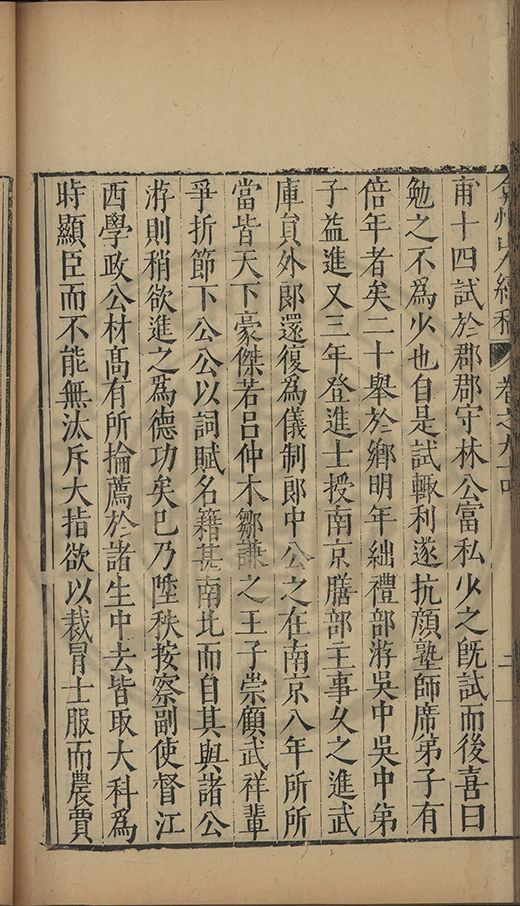 弇州山人續稿 卷之九十四 二
甫十四試於郡郡守林公富私少之旣試而後喜曰
勉之不爲少也自是試輒利遂抗顏塾師席弟子有
倍年者矣二十舉於鄉明年絀禮部游吳中吳中第
子益進又三年登進士授南京膳部主事久之進武
庫員外郞還復爲儀制郞中公之在南京八年所所
當皆天下豪傑若呂仲木鄒謙之王子崇顧武祥輩
爭折節下公公以詞賦名籍甚南北而自其與諸公
游則稍欲進之爲德功矣已乃陞秩按察副使督江
西學政公材高有所掄薦於諸生中去皆取大科爲
時顯臣而不能無汰斥大指欲以裁冐士服而農賈